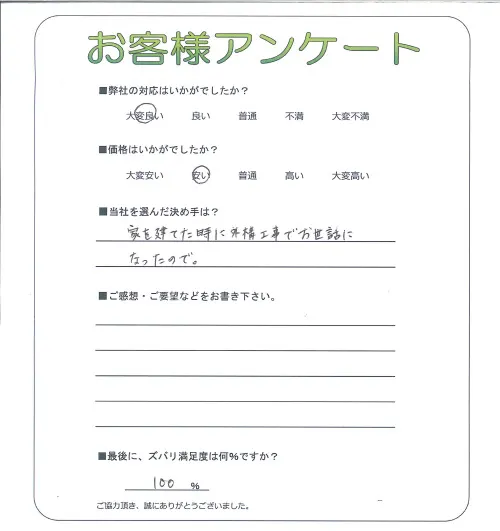 お客様アンケート
■弊社の対応はいかがでしたか？
大変良い 良い 普通 不満 大変不満
■価格はいかがでしたか？
大変安い 安い 普通 高い 大変高い
■当社を選んだ決め手は？
家を建てた時に外構工事でお世話に
なったので。
■ご感想・ご要望などをお書き下さい。
■最後に、ズバリ満足度は何%ですか？
100 %
ご協力頂き、誠にありがとうございました。